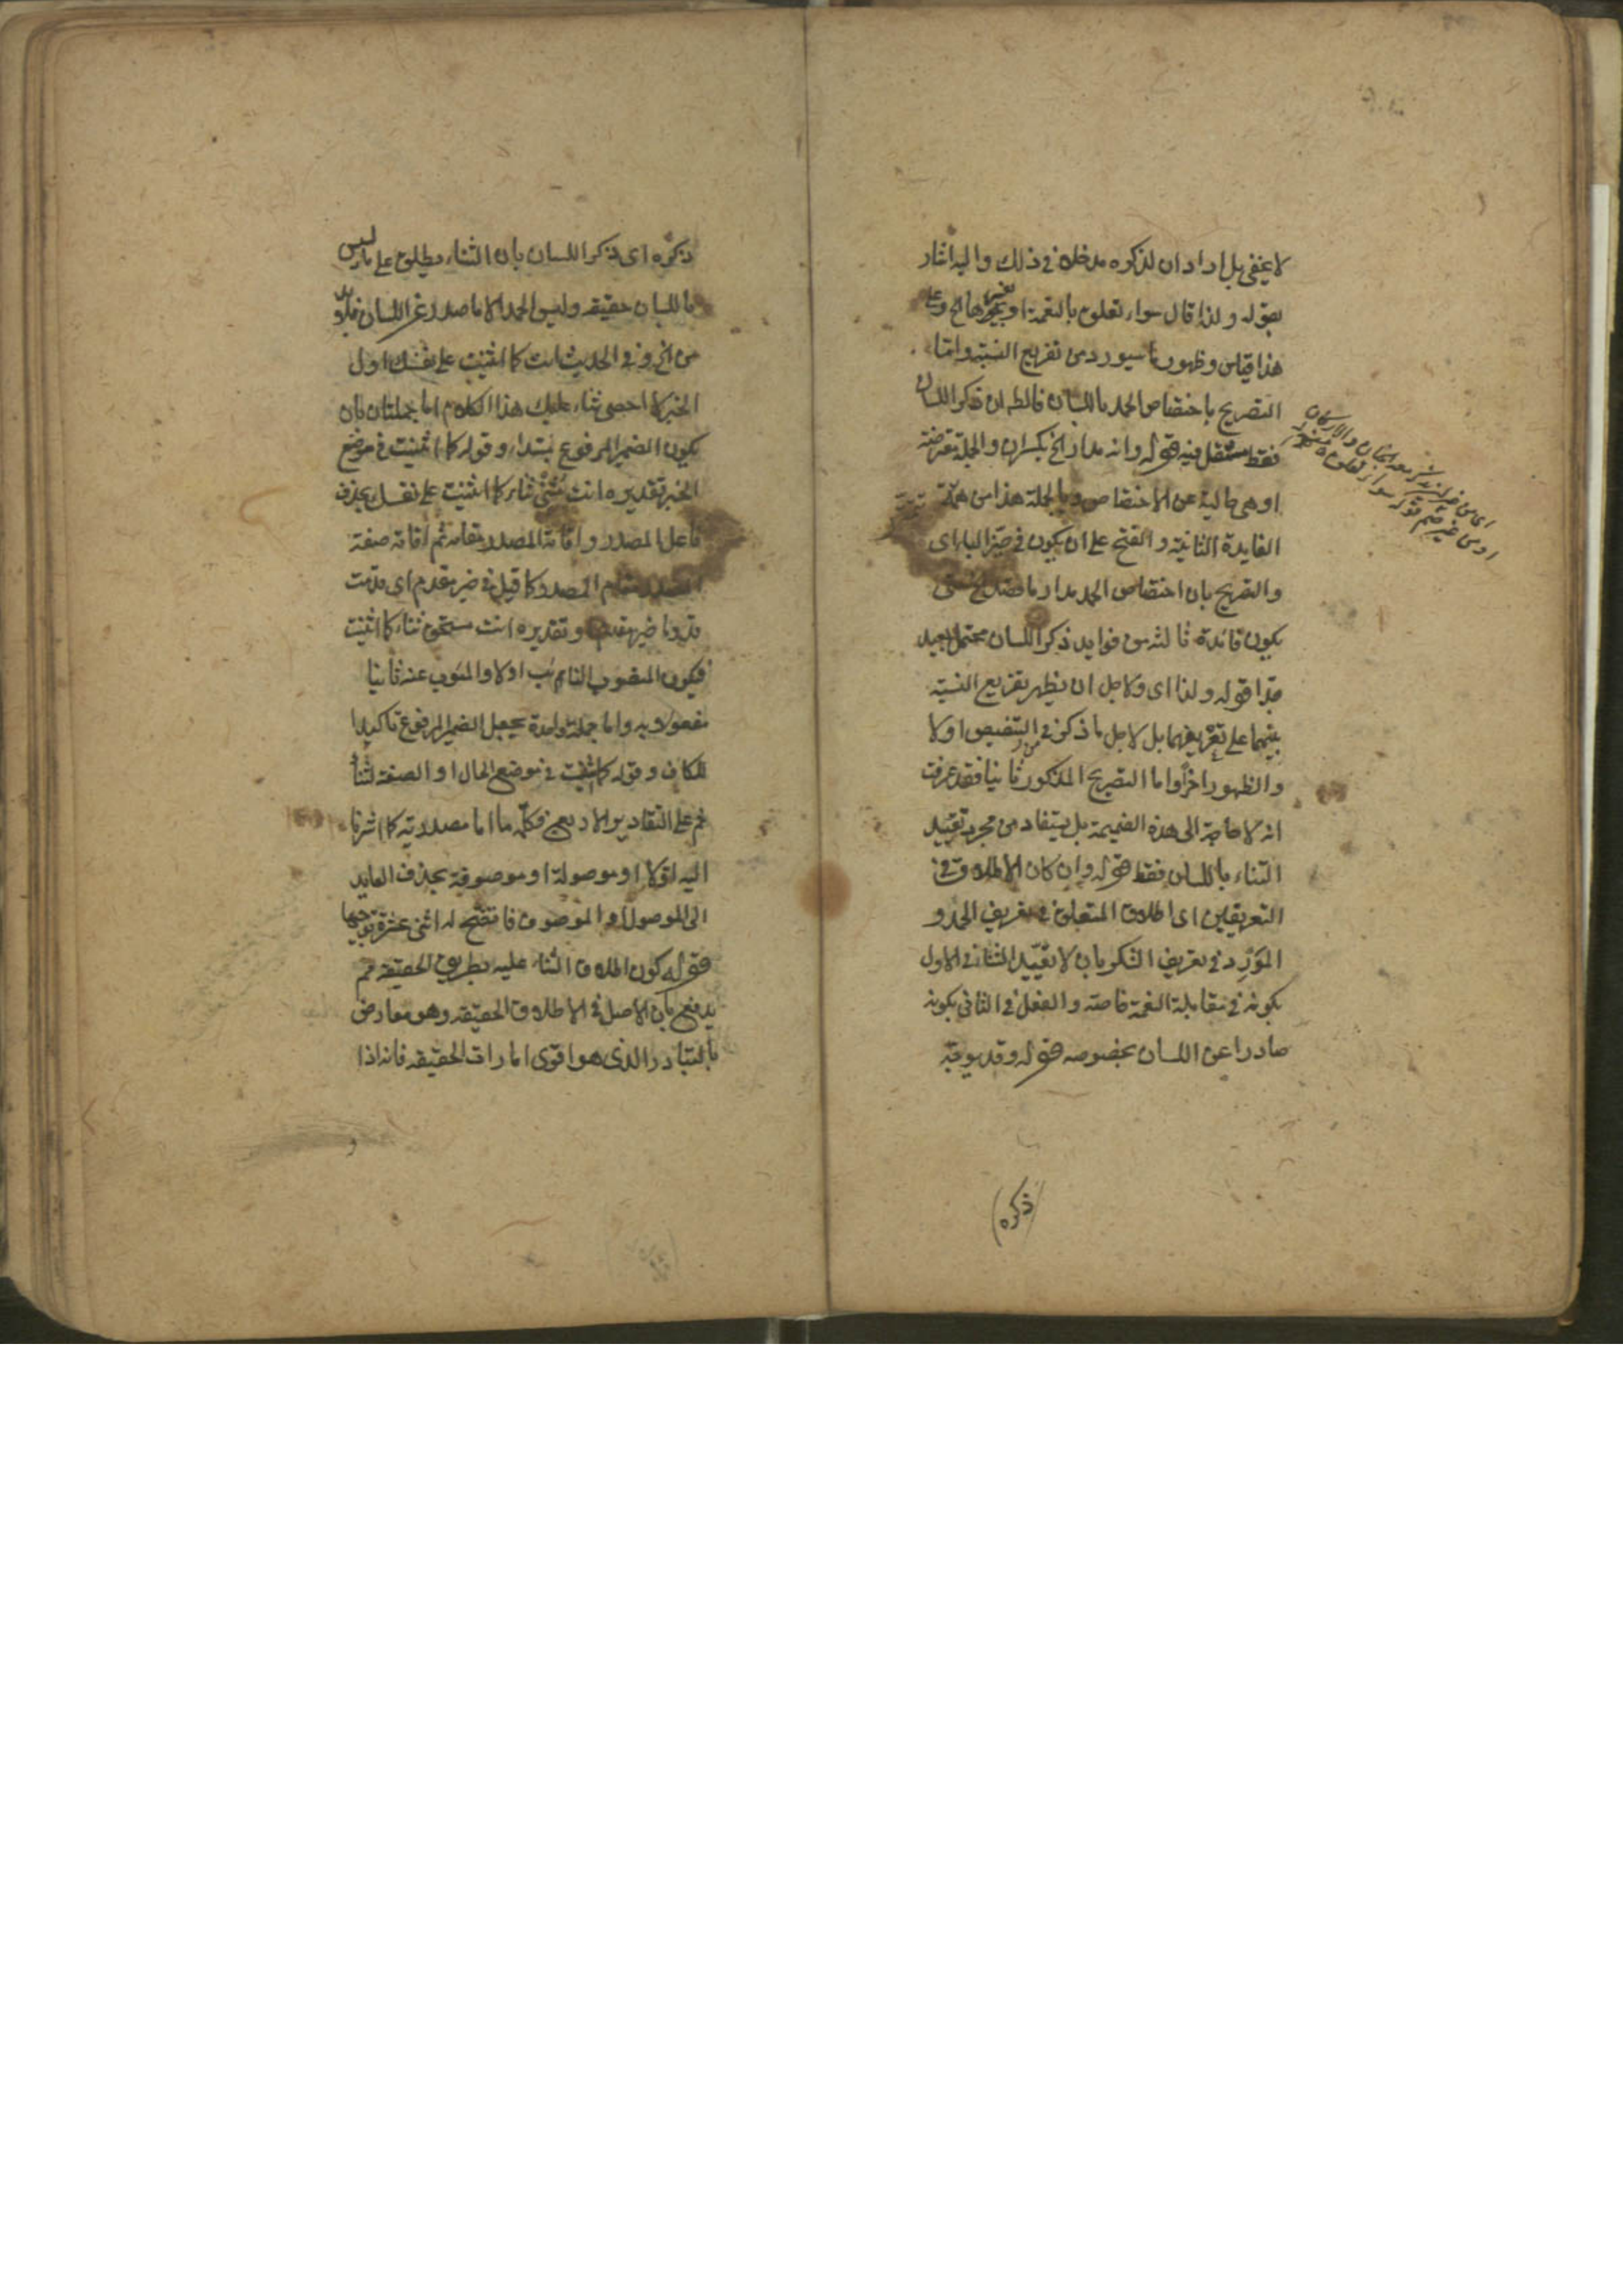 لا يخفى بل اراد ان لذكره مدخلا فى ذلك واليه اشار
بقوله ولذا قال سواء تعلق بالنعمة او بغيرها الخ وعلى
هذا قياس وظهور ما سيورد من تفريع النسبة واما
التصريح باختصاص الحمد باللسان فالظ ان ذكر اللسان
فقط مستقل فيه قوله وانه مدار الخ بكسر ان والجملة معترضة
او هى حالية عن الاختصاص وبالجملة هذا من
الفايدة الثانية والفتح على ان يكون فى حيز الباء اى
والتصريح بان اختصاص الحمد مدار ما حتى
يكون فائدة ثالثة من فوايد ذكر اللسان محتمل بعيد
جدا قوله ولذا اى ولاجل ان يظهر تفريع النسبة
بينهما على تعريفهما بل لاجل ما ذكر من التنصيص اولا
والظهور اخرا واما التصريح المذكور ثانيا فقد عرفت
انه لا حاجة الى هذه الضميمة بل يستفاد من مجرد تقييد
الثناء باللسان فقط قوله وان كان الاطلاق فى
التعريفين اى اطلاق المتعلق فى تعريف الحمد و
المورد فى تعريف الشكر بان لا تقييد الثناء فى الاول
بكونه فى مقابلة النعمة خاصة والفعل فى الثانى بكونه
صادرا عن اللسان بخصوصه قوله وقد يوجه
اى من غير ان يذكر معه الجنان والاركان
او من غير ضم قوله سواء تعلق
(ذكره)
ذكره اى ذكر اللسان بان الثناء يطلق على ما ليس
باللسان حقيقة وليس الحمد الا ما صدر عن اللسان فلا بد
من اخر وفى الحديث انت كما اثنيت على نفسك اول
الخبر لا احصى ثناء عليك هذا الكلام اما جملتان بان
يكون الضمير المرفوع مبتداء وقوله كما اثنيت فى موضع
الخبر تقديره انت مثنى ثناء كما اثنيت على نفسك بحذف
فاعل المصدر واقامة المصدر مقامه ثم اقامة صفة
المصدر مقام المصدر كما قيل فى خير مقدم اى قدمت
قدوما خير مقدم وتقديره انت مستحق ثناء كما اثنيت
فيكون المنصوب النائب اولا والمنوب عنه ثانيا
مفعولا به واما جملة واحدة بجعل الضمير المرفوع تاكيدا
للكاف وقوله كما اثنيت فى موضع الحال او الصفة لثناء
ثم على التقادير الاربع فكلمة ما اما مصدرية كما اشرنا
اليه اولا او موصولة او موصوفة بحذف العايد
الى الموصول او الموصوف فانفتح له اثنى عشرة توجيها
قوله كون اطلاق الثناء عليه بطريق الحقيقة مم
يدفع بان الاصل فى الاطلاق الحقيقة وهو معارض
بالتبادر الذى هو اقوى امارات الحقيقة فانه اذا